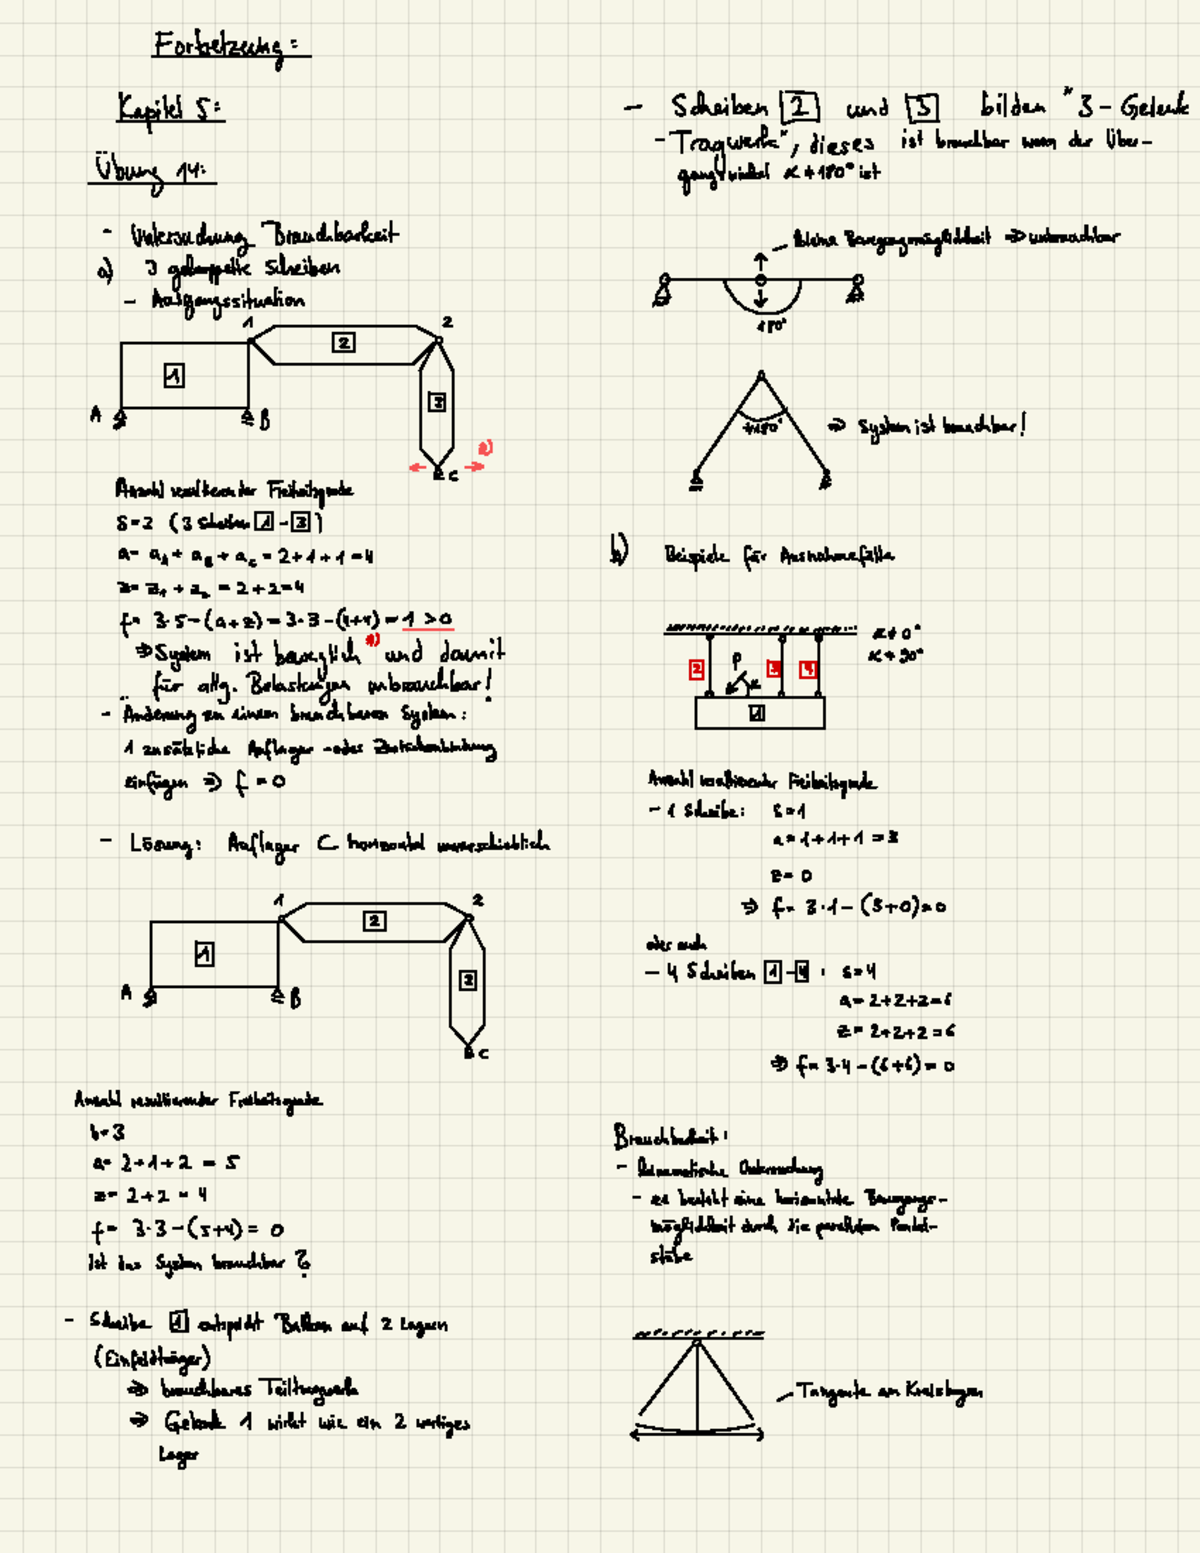 Fortsetzung:
Kapitel 5:
Übung 14:
- Untersuchung Brauchbarkeit
a) 3 gekoppelte Scheiben
- Ausgangssituation
1
2
2
1
3
A
B
C
*)
Anzahl resultierender Freiheitsgrade
S=2 (3 Scheiben 1 - 3)
a= a_A + a_B + a_C = 2+1+1 = 4
z= z_1 + z_2 = 2+2=4
f= 3·S-(a+z) = 3·3-(4+4) = 1 > 0
⇒ System ist beweglich *) und damit
für allg. Belastungen unbrauchbar!
- Änderung zu einem brauchbaren System:
1 zusätzliche Auflager- oder Zwischenbindung
einfügen ⇒ f = 0
- Lösung: Auflager C horizontal unverschieblich
1
2
2
1
2
A
B
C
Anzahl resultierender Freiheitsgrade
s=3
a= 2+1+2 = 5
z= 2+2 = 4
f= 3·3-(5+4) = 0
Ist das System brauchbar?
- Scheibe 1 entspricht Balken auf 2 Lagern
(Einfeldträger)
⇒ brauchbares Teiltragwerk
⇒ Gelenk 1 wirkt wie ein 2 wertiges
Lager
- Scheiben 2 und 3 bilden "3-Gelenk
-Tragwerk", dieses ist brauchbar wenn der Über-
gangswinkel α ≠ 180° ist
kleine Bewegungsmöglichkeit ⇒ unbrauchbar
180°
≠180°
⇒ System ist brauchbar!
b) Beispiele für Ausnahmefälle
α ≠ 0°
α ≠ 90°
2
P
α
3
4
1
Anzahl resultierender Freiheitsgrade
- 1 Scheibe: s=1
a= 1+1+1 = 3
z= 0
⇒ f= 3·1-(3+0)=0
oder auch
- 4 Scheiben 1-4: s=4
a= 2+2+2=6
z= 2+2+2=6
⇒ f= 3·4-(6+6) = 0
Brauchbarkeit:
- kinematische Untersuchung
- es besteht eine horizontale Bewegungs-
möglichkeit durch die parallelen Pendel-
stäbe
Tangente am Kreisbogen